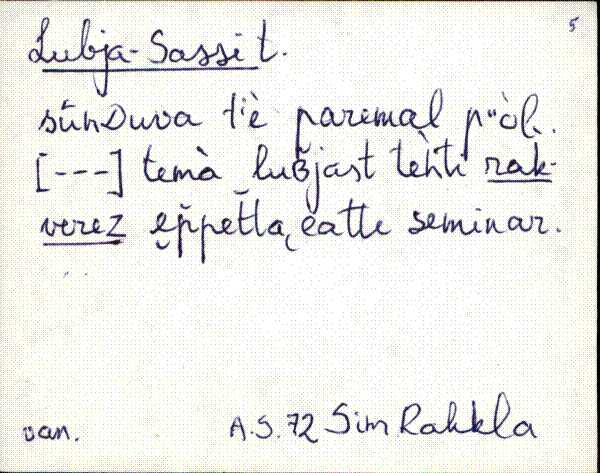 5
Lubja-Sassi t.
sündDuva tiè paremal pòl.
[---] temà lubjast tehti rak-
verez eppetta, eatte seminar.
van. A.S. 72 Sim Rahkla